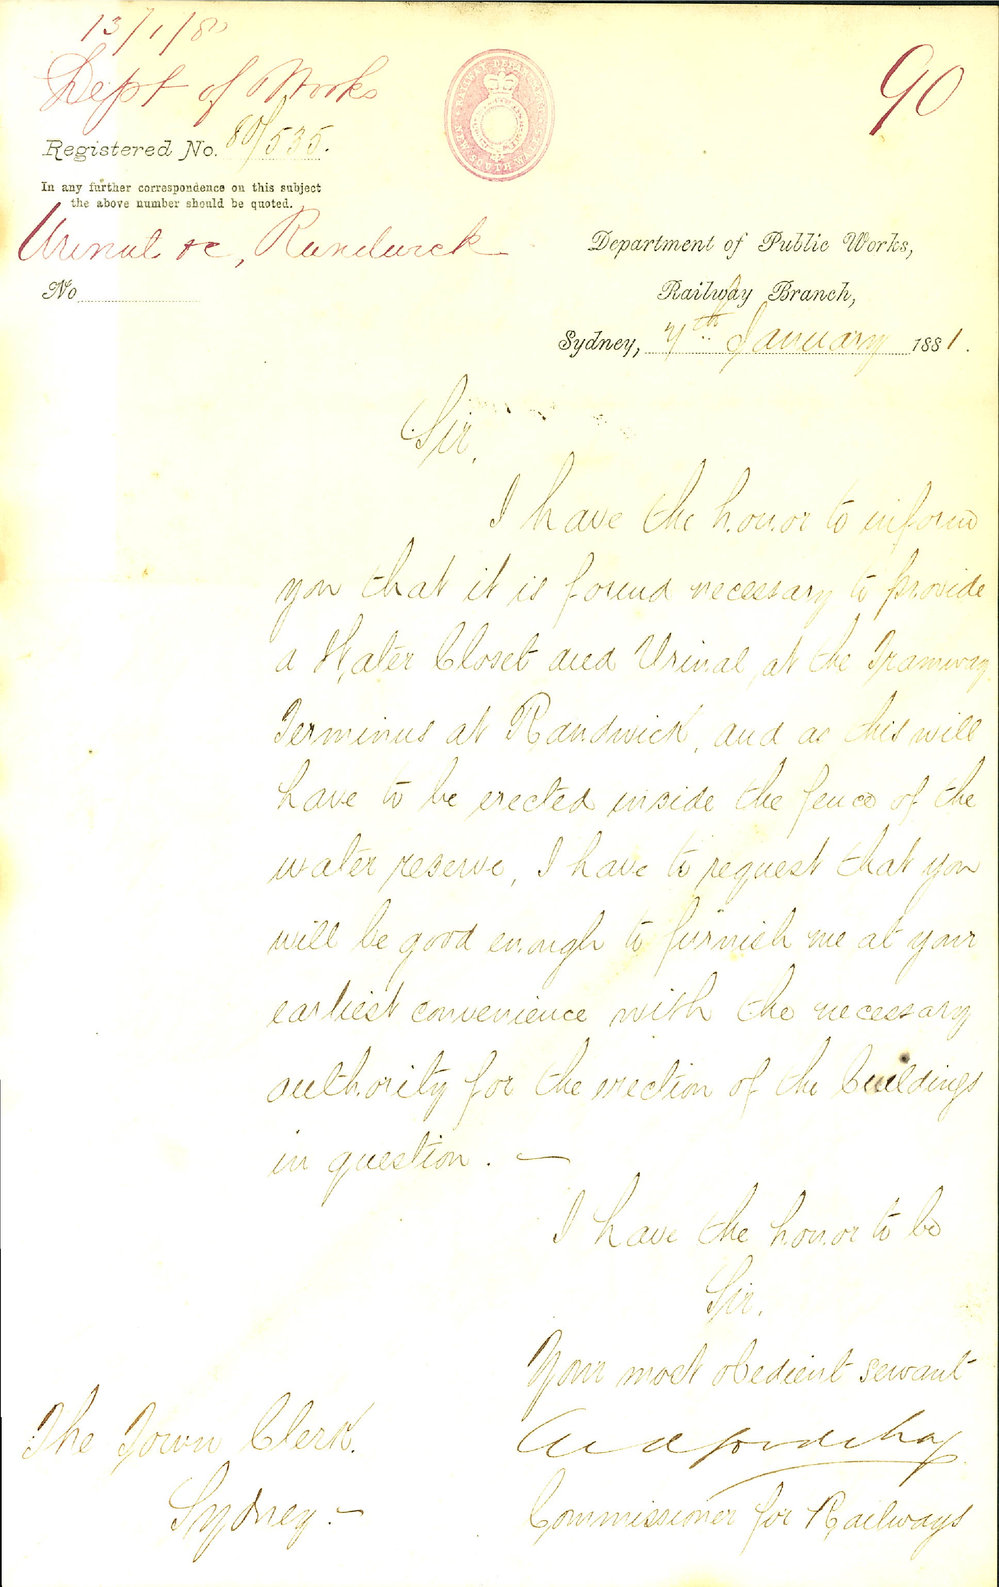 13/1/8
Dept of Works
90
Registered No. 80/535.
In any further correspondence on this subject
the above number should be quoted.
Urinal &c, Randwick
No
Department of Public Works,
Railway Branch,
Sydney, 7th January 1881.
Sir,
I have the honor to inform
you that it is found necessary to provide
a Water Closet and Urinal, at the Tramway
Terminus at Randwick, and as this will
have to be erected inside the fence of the
water reserve, I have to request that you
will be good enough to furnish me at your
earliest convenience with the necessary
authority for the erection of the buildings
in question. —
I have the honor to be
Sir.
Your most obedient servant
Commissioner for Railways
The Town Clerk.
Sydney. —